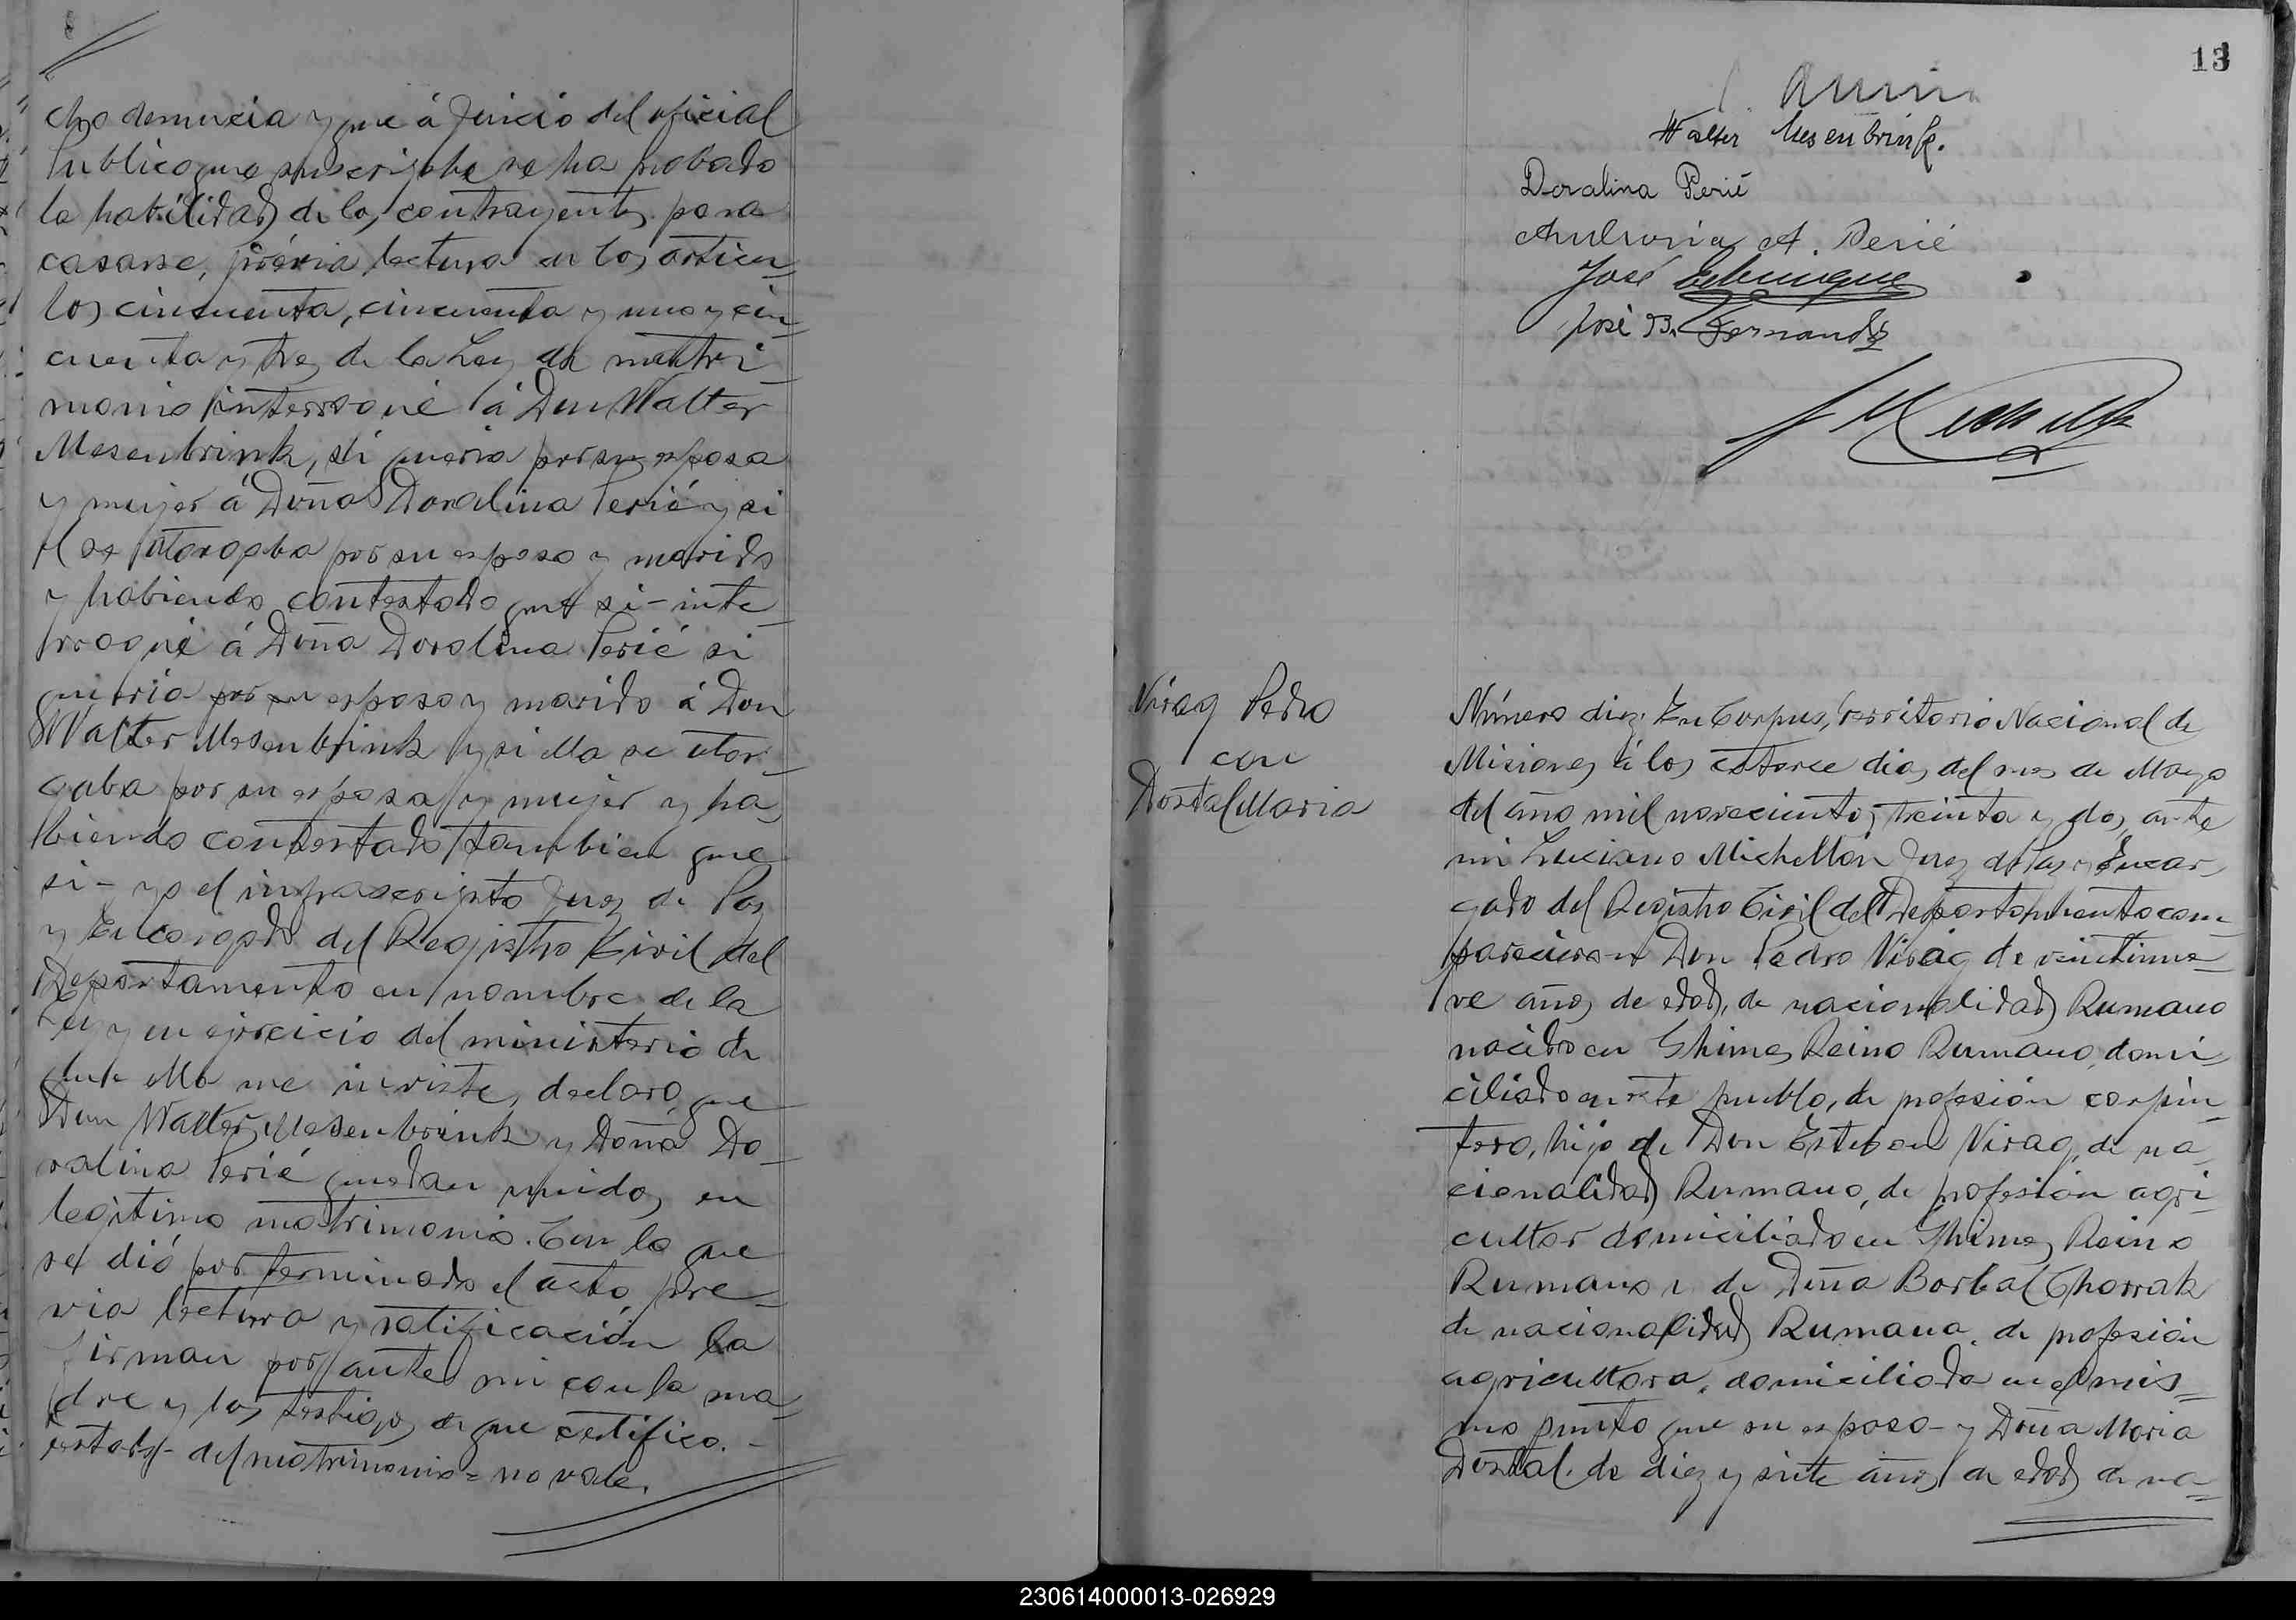 cha denuncia y que á juicio del oficial
Publico que suscribe se ha probado
la habilidad de los contrayentes para
casarse, prévia lectura de los artícu_
los cincuenta, cincuenta y uno y cin_
cuenta y tres de la Ley de matri_
monio interrogué á Don Walter
Mesenbrink, si queria por su esposa
y mujer á Doña Doralina Perié y si
el se otorgaba por su esposo y marido
y habiendo contestado que si - inte_
rrogué á Doña Doralina Perié si
queria por su esposo y marido á Don
Walter Mesenbrink y si ella se otor_
gaba por su esposa y mujer y ha_
biendo contestado tambien que
si - yo el infrascripto Juez de Paz
y Encargado del Registro Civil del
Departamento en nombre de la
Ley y en ejercicio del ministerio de
que ella me inviste, declaro que
Don Walter Mesenbrink y Doña Do_
ralina Perié quedan unidos en
legítimo matrimonio. Con lo que
se dió por terminado el acto, pre_
via lectura y ratificación la
firman por ante mi con la ma_
dre y los testigos de que certifico. -
del matrimonio = no vale.
13
Walter Mesenbrink.
Doralina Perié
A. Perié
José
José B. Fernandez
Virag Pedro
con
Dostal Maria
Número diez: En Corpus, Territorio Nacional de
Misiones á los catorce dias del mes de Mayo
del año mil novecientos treinta y dos, ante
mi Luciano Michellón Juez de Paz y Encar_
gado del Registro Civil del Departamento com_
parecieron Don Pedro Virág de veintinue_
ve años de edad, de nacionalidad Rumano
nacido en Ghimes Reino Rumano, domi_
ciliado en este pueblo, de profesión carpin_
tero, hijo de Don Esteban Virag, de na_
cionalidad Rumano, de profesión agri_
cultor domiciliado en Ghimes Reino
Rumano y de Doña Borbal Chorrak
de nacionalidad Rumana, de profesión
agricultora, domiciliada en el mis_
mo punto que su esposo - y Doña Maria
Dostal. de diez y siete años de edad de na_
230614000013-026929